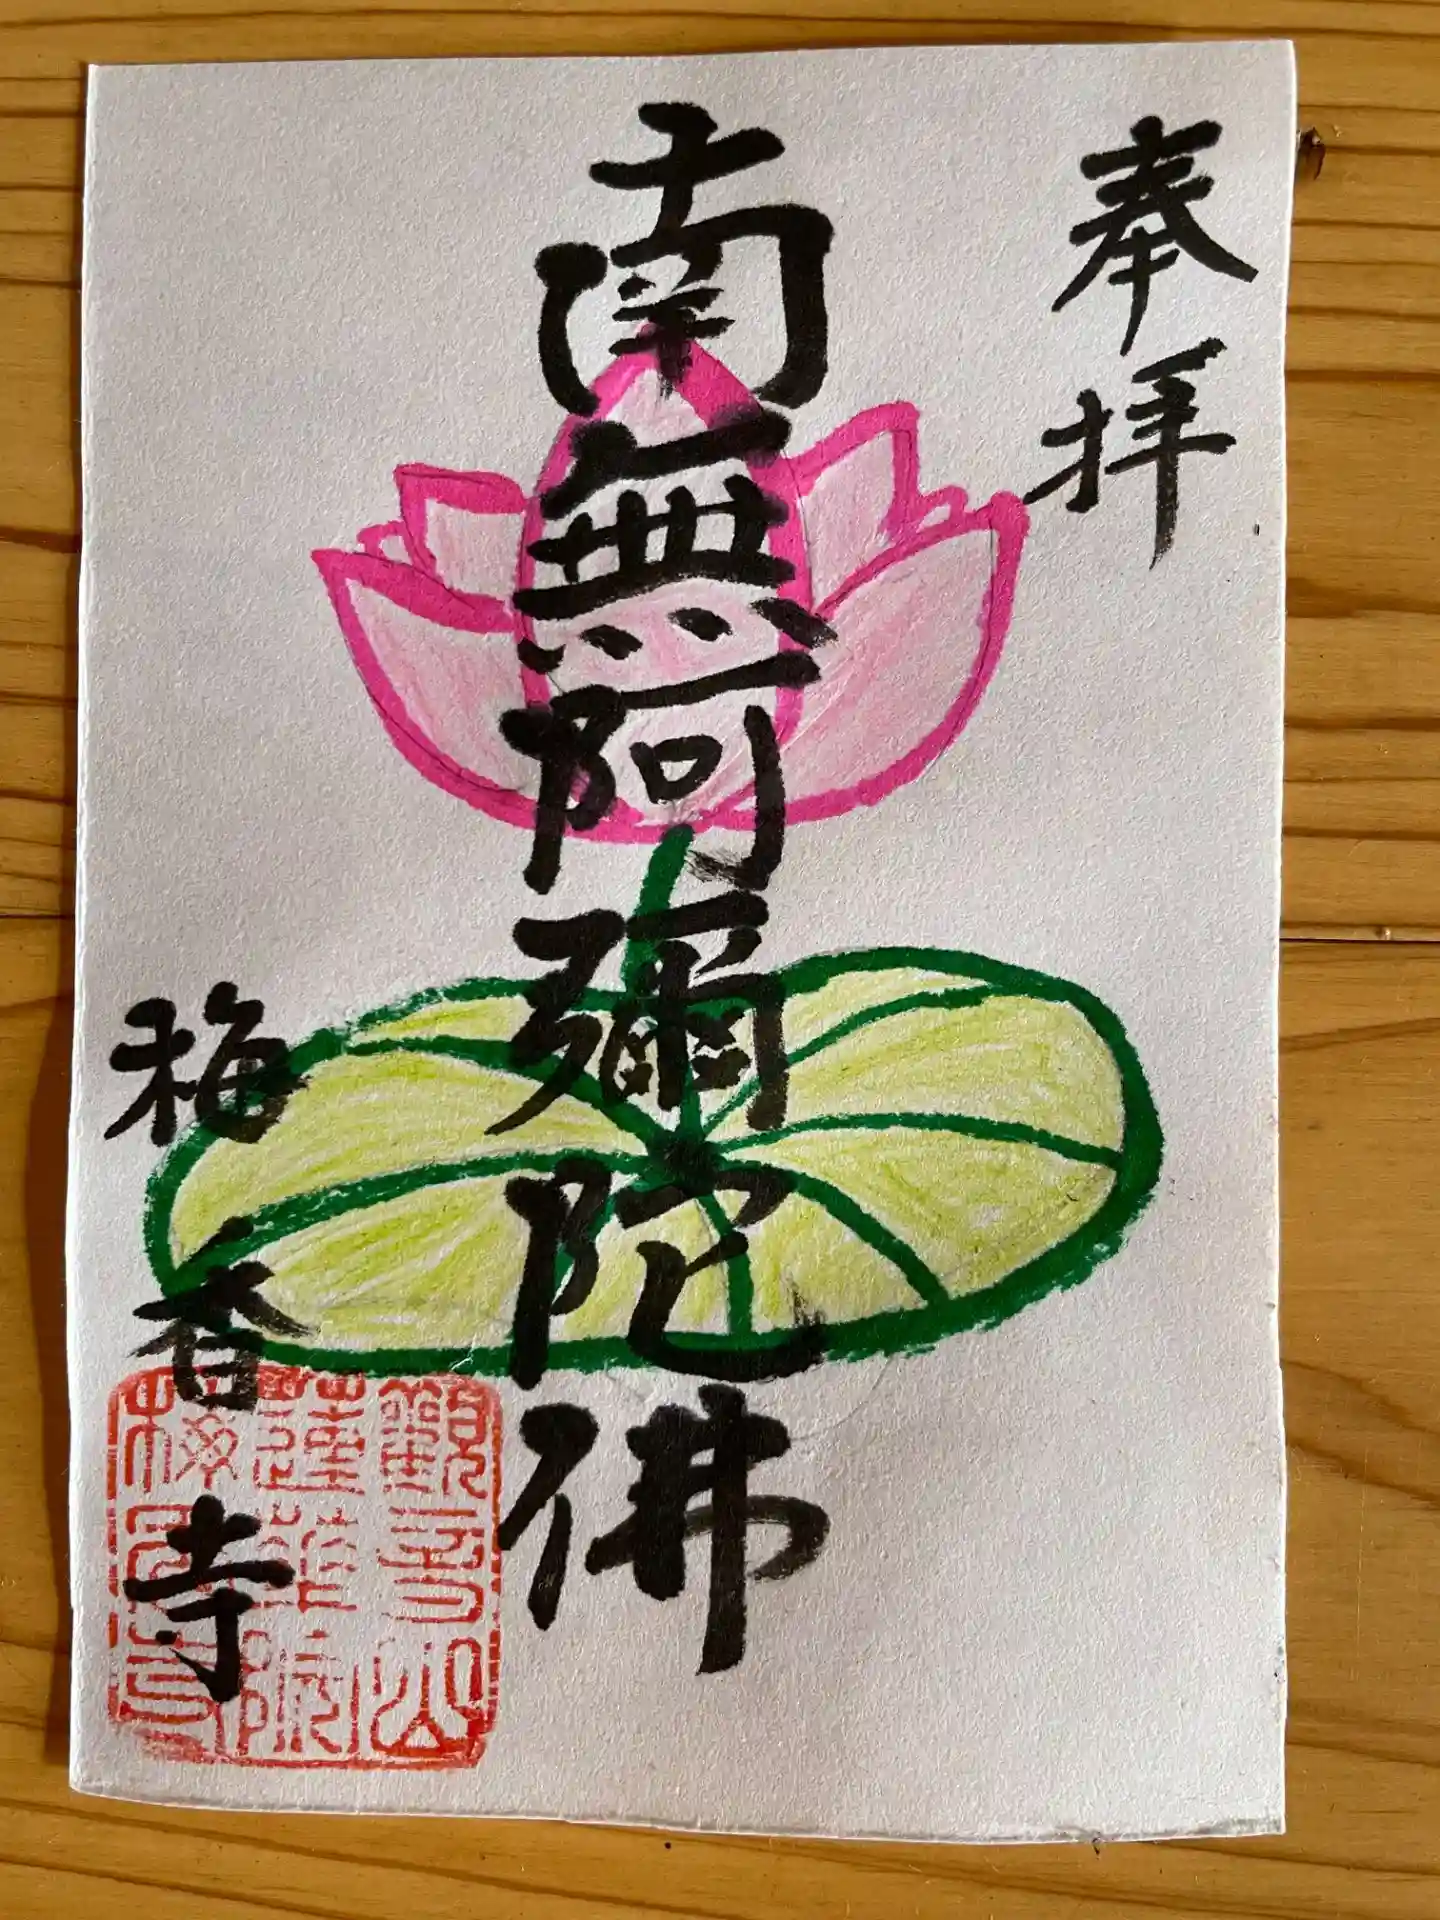 奉拝
南無阿彌陀佛
梅香寺